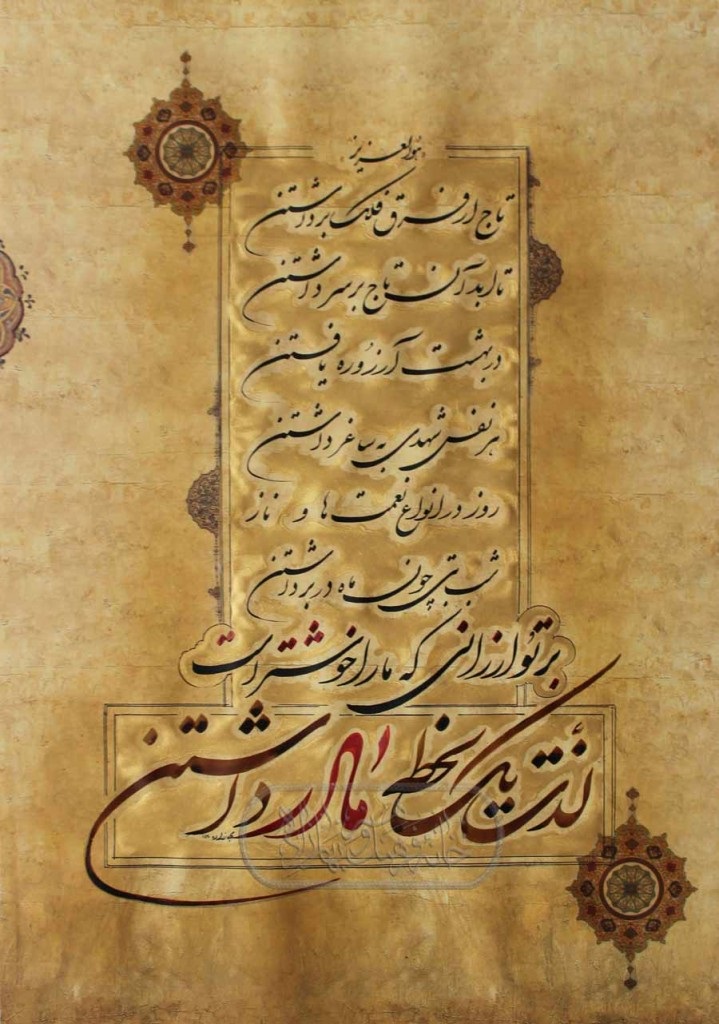 هوالعزیز
تاج از فرق فلک برداشتن
تا ابد آن تاج بر سر داشتن
در بهشت آرزو ره یافتن
هر نفس شهدی به ساغر داشتن
روز در انواع نعمت ها و ناز
شب بتی چون ماه در بر داشتن
بر تو ارزانی که ما را خوشتر است
لذت یک لحظه مادر داشتن